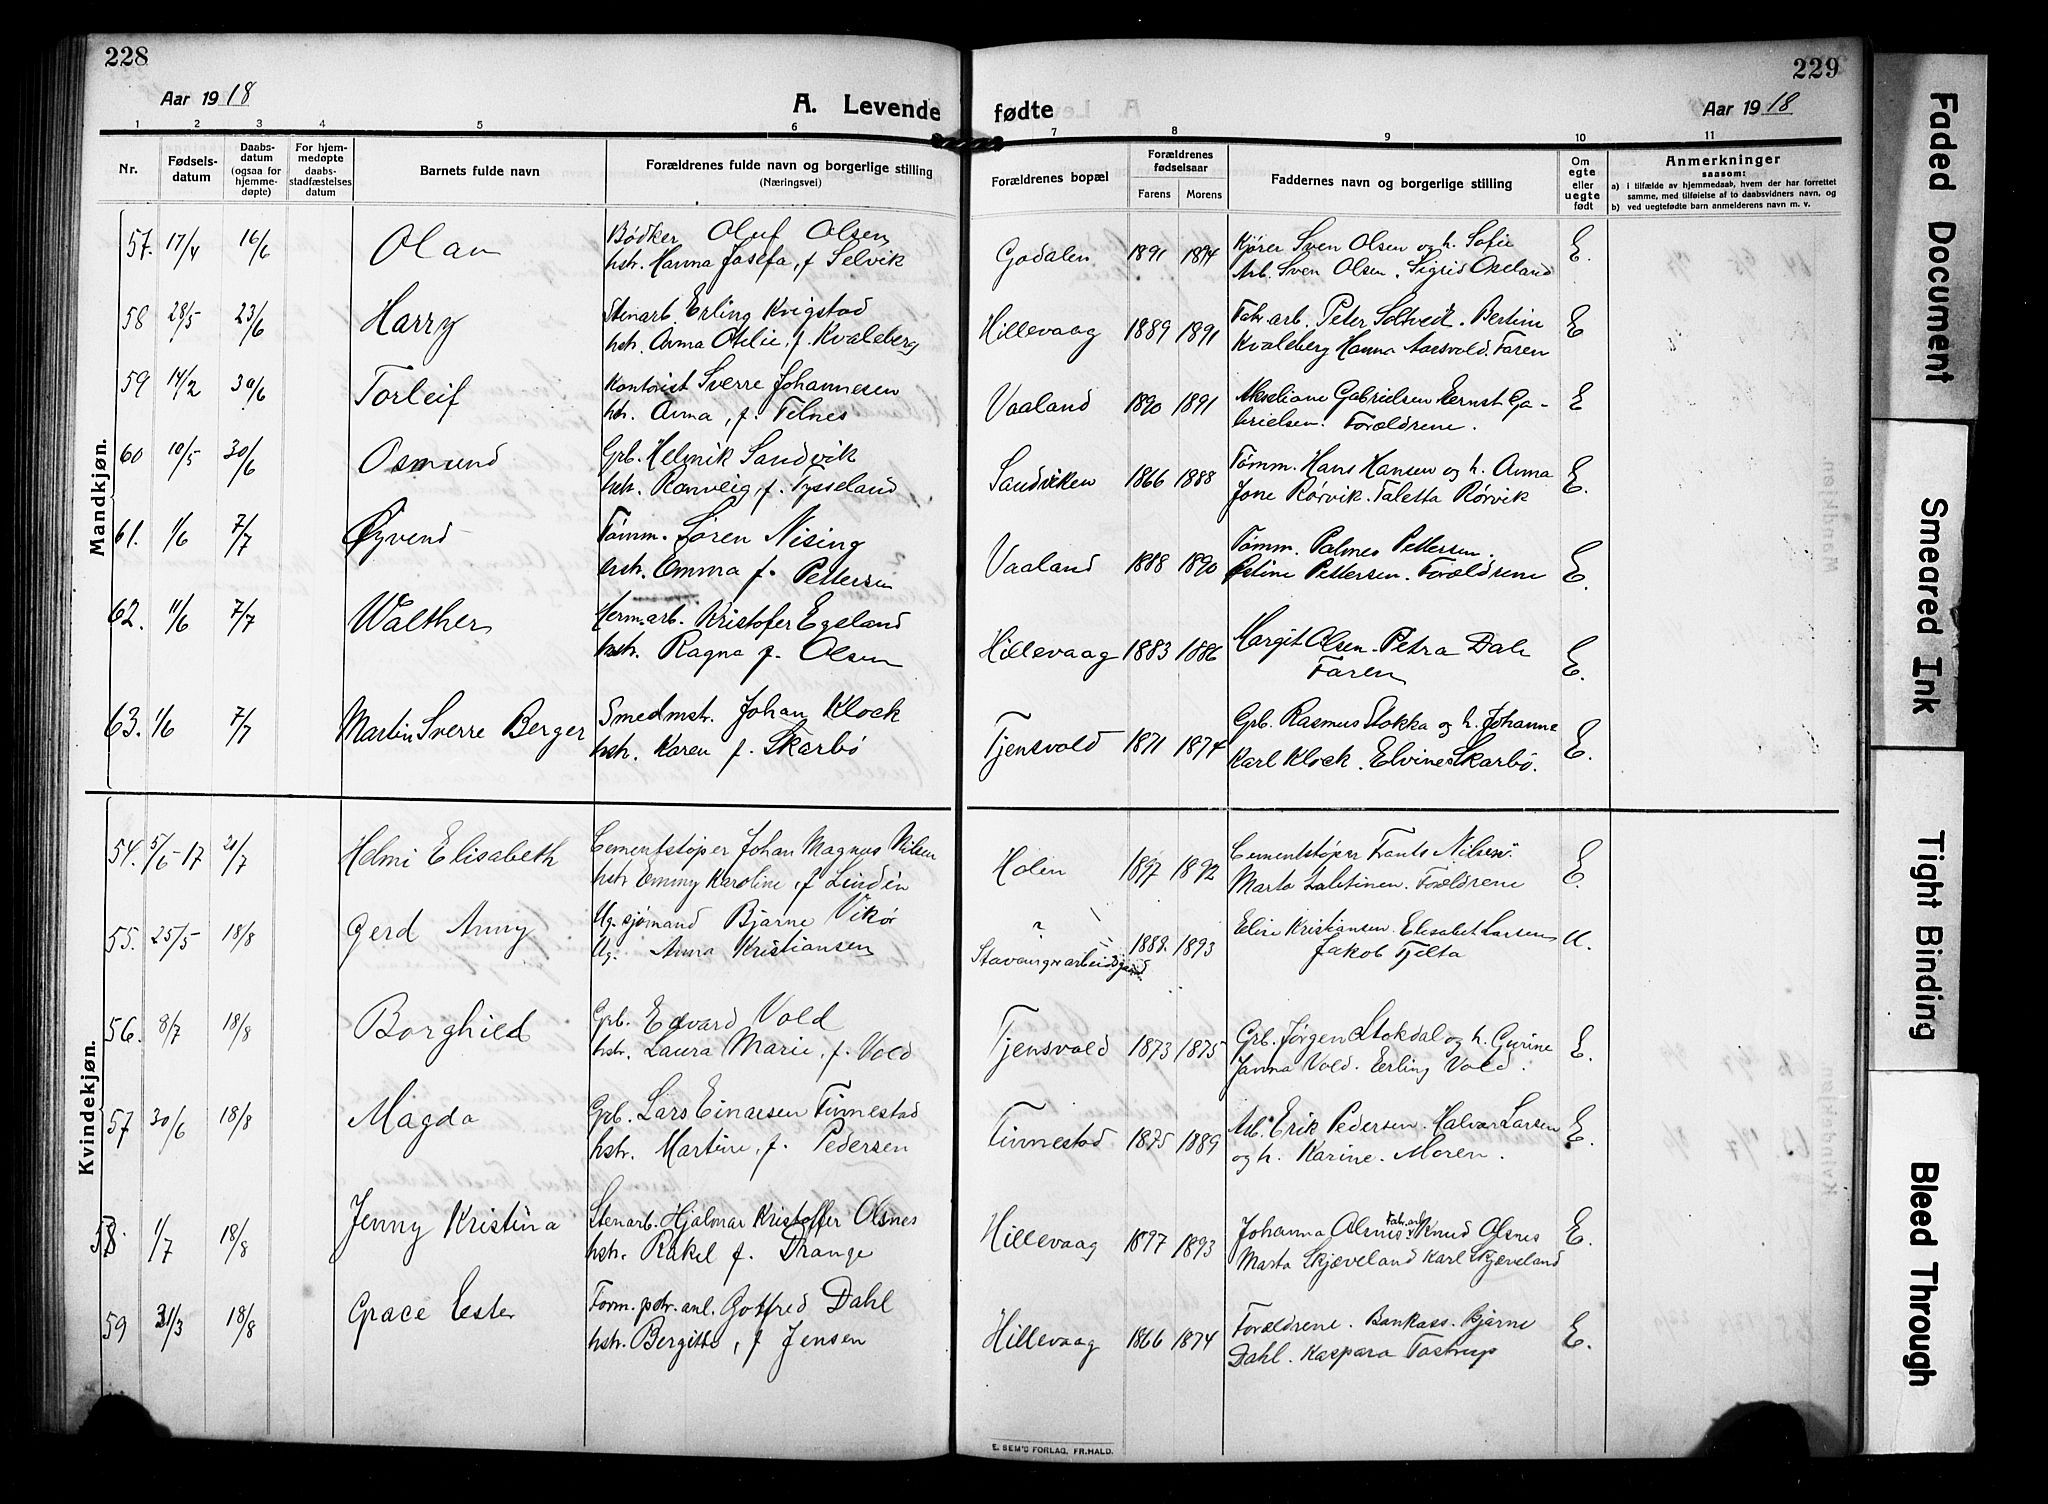 228
Aar 1918
A. Levende
1 2 3 4 5 6
Nr.
Fødsels-
datum
Daabs-
datum
(ogsaa for
hjemme-
døpte)
For hjem-
medøpte
daabs-
stadfæstelses
datum
Barnets fulde navn
Forældrenes fulde navn og borgerlige stilling
(Næringsvei)
Mandkjøn.
57. 17/4 16/6 Olav
Bødker Oluf Olsen
hstr. Hanna Josefa, f. Selvik
58 28/5 23/6 Harry
Stenarb. Erling Kvigstad
hstr. Anna Otilie, f. Kvaleberg
59 14/2 30/6 Torleif
Kontorist Sverre Johannesen
htr. Anna, f. Filnes
60 10/5 30/6 Osmund
Grb. Helmik Sandvik
hstr. Ranveig, f. Tysseland
61. 1/6 7/7 Øyvend
Tømm. Søren Nising
hstr. Emma f. Pettersen
62. 11/6 7/7 Walther
Herm.arb. Kristofer Egeland
hstr. Ragna f. Olsen
63. 1/6 7/7 Martin Sverre Berger
Smedmstr. Johan Klock
hstr. Karen f. Skarbø
Kvindekjøn.
54. 5/6-17 21/7 Helmi Elisabeth
Cementstøper Johan Magnus Nilsen
hstr Emmy Karoline, f Lindén
55. 25/5 18/8 Gerd Anny
Ug. sjømand Bjarne Vikør
Ug. Anna Kristiansen
56. 8/7 18/8 Borghild
Grb. Edvard Vold
hstr. Laura Marie, f. Vold
57 30/6 18/8 Magda
Grb. Lars Einarsen Finnestad
hstr. Martine, f. Pedersen
58. 1/7 18/8 Jenny Kristina
Stenarb. Hjalmar Kristoffer Olsnes
hstr. Rakel f. Drange
59 31/3 18/8 Grace Ester
Form. pstr. anl. Gotfred Dahl
hstr. Bergitte, f Jensen
229
fødte
Aar 1918
7 8 9 10 11
Forældrenes bopæl
Forældrenes
fødselsaar
Farens Morens
Faddernes navn og borgerlige stilling
Om
egte
eller
uegte
født
Anmerkninger
saasom:
a) i tilfælde av hjemmedaab, hvem der har forrettet
samme, med tilføielse af to daabsvidners navn, og
b) ved uegtefødte barn anmelderens navn m. v.
Godalen 1891 1894 Kjører Sven Olsen og h. Sofie
Arb. Sven Olsen. Sigrid Opeland E.
Hillevaag 1889 1891 Fabr.arb. Peter Soltveit. Bertine
Kvaleberg Hanna Aarsvold. Faren E
Vaaland 1890 1891 Akseliane Gabrielsen Ernst Ga-
brielsen. Forældrene. E
Sandviken 1866 1888 Tømm. Hans Hansen og h. Anna
Jone Rørvik. Taletta Rørvik E.
Vaaland 1888 1890 Tømm. Palmes Pettersen.
Stine Pettersen. Forældrene E.
Hillevaag 1883 1886 Margit Olsen. Petra Dale
Faren E.
Tjensvold 1871 1874 Grb. Rasmus Stokka og h. Johanne
Karl Klock. Elvine Skarbø. E.
Holen 1897 1892 Cementstøper Frants Nilsen.
Marta Forældrene E.
?
Stavanger arbeidsgaard 1888. 1893 Elise Kristiansen. Elisabet Larsen
Jakob Tjelta U.
Tjensvold 1873 1875 Grb. Jørgen Stokdal og h. Gurine
Janna Vold. Erling Vold. E.
Finnestad 1875 1889 Arb. Erik Pedersen. Halvar Larsen
og h. Karine. Moren. E.
Hillevaag 1897 1893 Johanna Olsnes Fabr.arb. Knud Olsnes
Marta Skjæveland Karl Skjæveland E.
Hillevaag 1866 1874 Forældrene. Bankass. Bjarne
Dahl. Kaspara Tastrup E.
E. SEM'S FORLAG, FR.HALD.
Faded Document
Smeared Ink
Tight Binding
Bleed Through